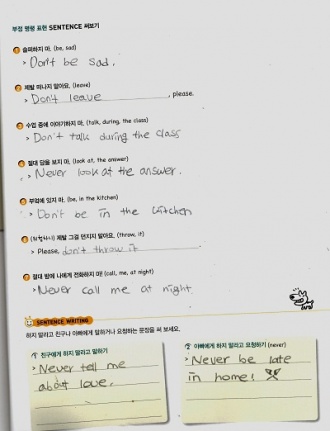 부정 명령 표현 SENTENCE 써보기
슬퍼하지 마. (be, sad)
> Don't be sad.
제발 떠나지 말아요. (leave)
> Don't leave , please.
수업 중에 이야기하지 마. (talk, during, the class)
> Don't talk during the class
절대 답을 보지 마. (look at, the answer)
> Never look at the answer.
부엌에 있지 마. (be, in the kitchen)
> Don't be in the kitchen
제발 그걸 던지지 말아요. (throw, it)
> Please, don't throw it
절대 밤에 나에게 전화하지 마! (call, me, at night)
> Never call me at night
SENTENCE WRITING
하지 말라고 친구나 아빠에게 말하거나 요청하는 문장을 써 보세요.
친구에게 하지 말라고 말하기
> Never tell me
about love.
아빠에게 하지 말라고 요청하기 (never)
> Never be late
in home!